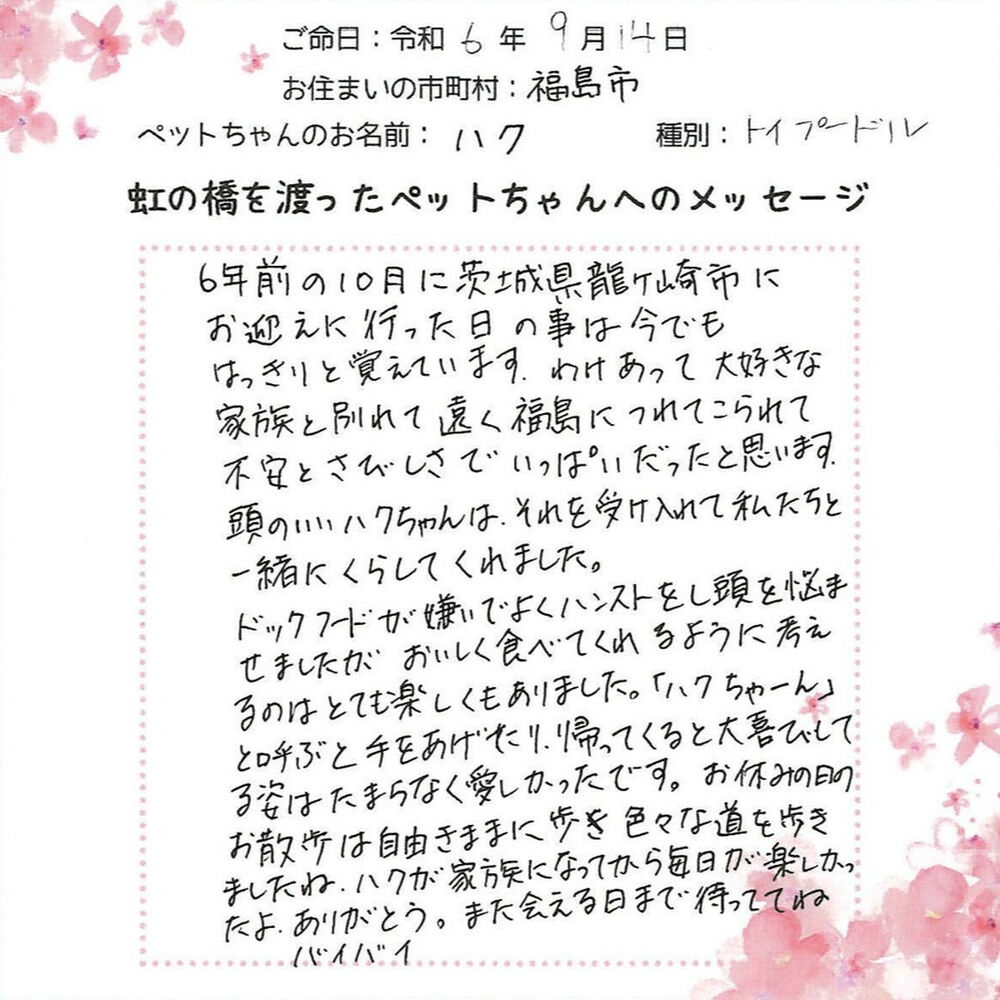 ご命日：令和 6 年 9 月 14 日
お住まいの市町村：福島市
ペットちゃんのお名前： ハク 種別： トイプードル
虹の橋を渡ったペットちゃんへのメッセージ
6年前の10月に茨城県龍ケ崎市に
お迎えに行った日の事は今でも
はっきりと覚えています。わけあって大好きな
家族と別れて遠く福島につれてこられて
不安とさびしさでいっぱいだったと思います。
頭のいいハクちゃんは、それを受け入れて私たちと
一緒にくらしてくれました。
ドックフードが嫌いでよくハンストをし頭を悩ま
せましたが おいしく食べてくれるように考え
るのはとても楽しくもありました。「ハクちゃーん」
と呼ぶと手をあげたり、帰ってくると大喜びして
る姿はたまらなく愛しかったです。お休みの日の
お散歩は自由きままに歩き色々な道を歩き
ましたね、ハクが家族になってから毎日が楽しかっ
たよ、ありがとう。また会える日まで待っててね
バイバイ